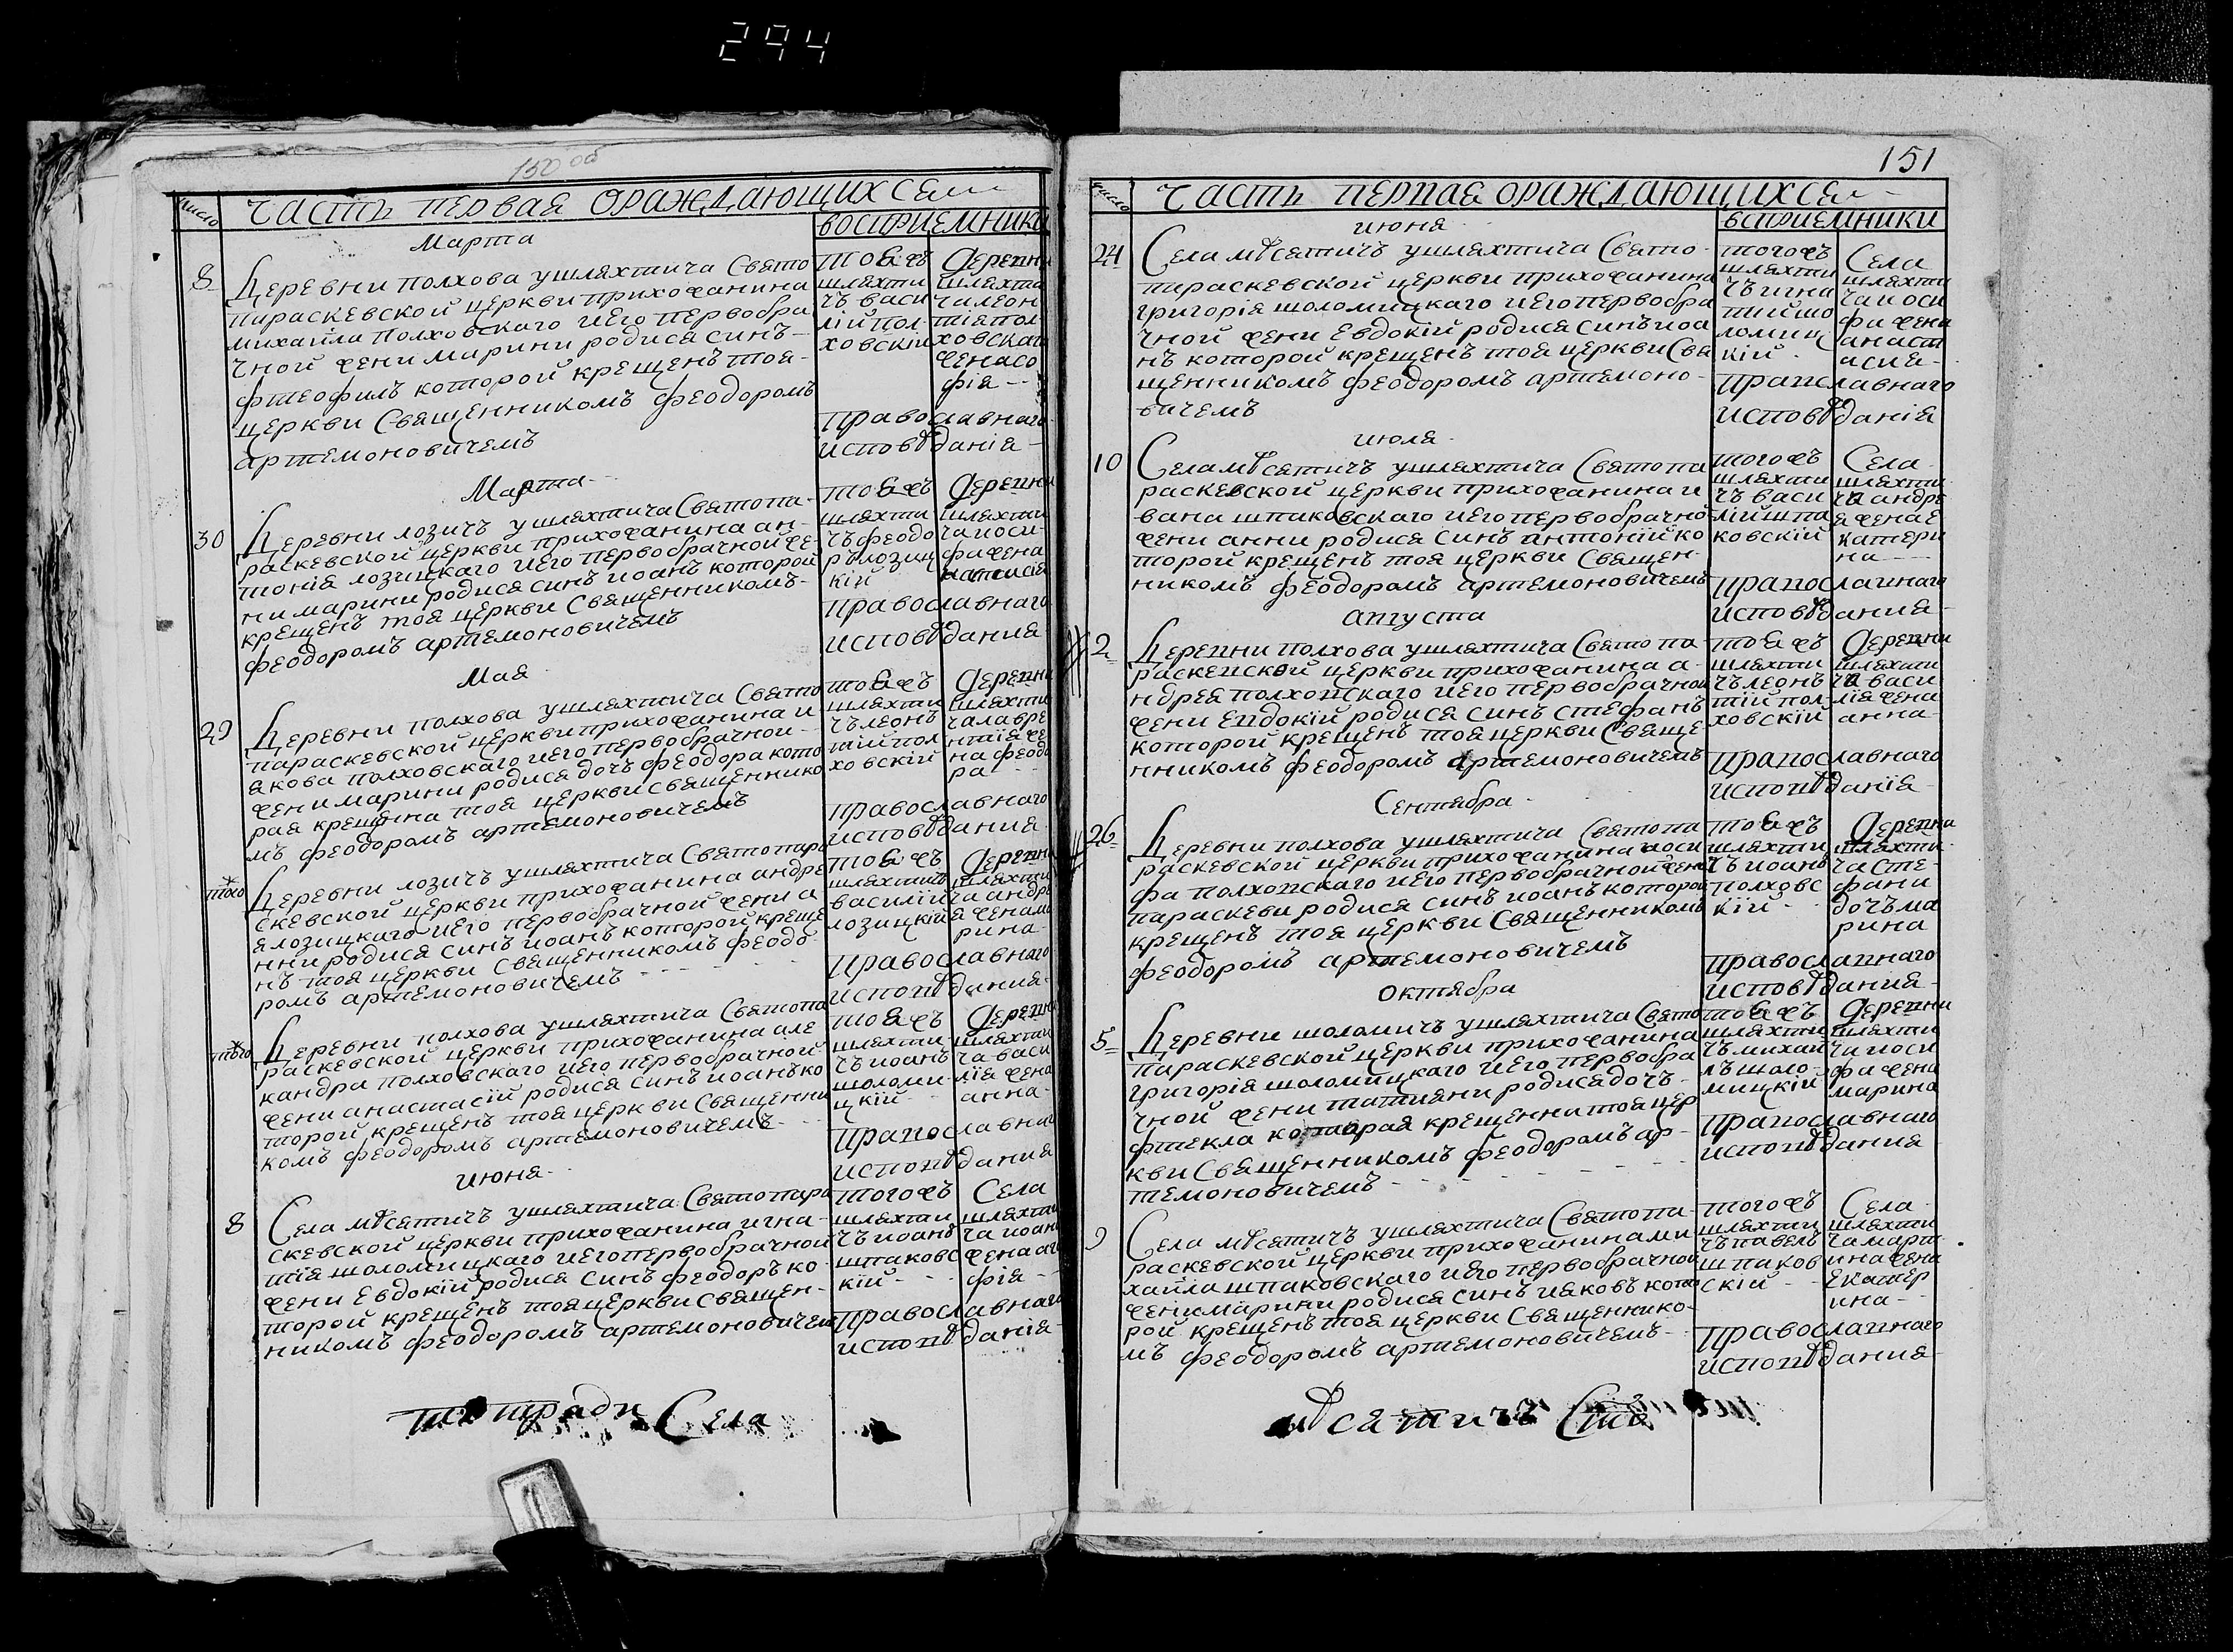 294
150 об
число
ЧАСТЬ ПЕРВАЯ ОРАЖДАЮЩИХСЕ
ВОСПРИЕМНИКИ
Марта
8
Деревни полхова ушляхтича Свято
параскевской церкви прихожанина
михайла полховскаго иего первобра
чной жени марини родися синъ
фтеофилъ которой крещенъ тоя
церкви Священникомъ феодоромъ
артемоновичемъ
тоя жъ
шляхти
чъ васи
лій пол
ховскій
Деревни
шляхти
ча леон
тія пол
ховскаго
жена со
фія
православнаго
исповѣданія
Марта
30
Деревни лозичъ ушляхтича Святопа
раскевской церкви прихожанина ан
тонія лозицкаго иего первобрачной же
ни марини родися синъ иоанъ которой
крещенъ тоя церкви Священникомъ
феодоромъ артемоновичемъ
тоя жъ
шляхти
чъ феодо
ръ лозиц
кій
Деревни
шляхти
ча иоси
фа жена
православнаго
исповѣдания
Мая
29
Деревни полхова ушляхтича Свято
параскевской церкви прихожанина и
якова полховскаго иего первобрачной
жени марини родися дочъ феодора кото
рая крещенна тоя церкви священнико
мъ феодоромъ артемоновичемъ
тоя жъ
шляхти
чъ леонъ
тій пол
ховскій
Деревни
шляхти
ча лавре
нтія же
на феодо
ра
православнаго
исповѣдания
того
Деревни лозичъ ушляхтича Святопара
скевской церкви прихожанина андре
я лозицкаго иего первобрачной жени а
нни родися синъ иоанъ которой креще
нъ тоя церкви священникомъ феодо
ромъ артемоновичемъ
тоя жъ
шляхтичъ
василій
лозицкій
Деревни
шляхти
ча андре
я жена ма
рина
православнаго
исповѣдания
того
Деревни полхова ушляхтича Святопа
раскевской церкви прихожанина але
кандра полховскаго иего первобрачной
жени анастасій родися синъ иоанъ ко
торой крещенъ тоя церкви Священни
комъ феодоромъ артемоновичемъ
тоя жъ
шляхти
чъ иоанъ
шоломи
цкій
Деревни
шляхти
ча васи
лія жена
анна
православнаго
исповѣдания
июня
8
Села мѣсятичъ ушляхтича Святопара
скевской церкви прихожанина игна
тія шоломицкаго иего первобрачной
жени Евдокій родися синъ феодоръ ко
торой крещенъ тоя церкви Священ
никомъ феодоромъ артемоновичемъ
того жъ
шляхти
чъ иоанъ
шпаковс
кій
Села
шляхти
ча иоан
жена
фія
православнаго
исповѣданія
тетради Села
151
число
ЧАСТЬ ПЕРВАЯ ОРАЖДАЮЩИХСЕ
ВСПРИЕМНИКИ
июня
24
Села мѣсятичъ ушляхтича Свято
параскевской церкви прихожанина
григорія шоломицкаго иего первобра
чной жени Евдокій родися синъ иоа
нъ которой крещенъ тоя церкви Свя
щенникомъ феодоромъ артемоно
вичемъ
того жъ
шляхти
чъ игна
тий шо
ломиц
кій
Села
шляхти
ча иоси
фа жена
анаст
асия
православнаго
исповѣданія
июля
10
Села мѣсятичъ ушляхтича Святопа
раскевской церкви прихожанина и
вана шпаковскаго иего первобрачной
жени анни родися Синъ антоній ко
торой крещенъ тоя церкви священ
никомъ феодоромъ артемоновичемъ
того жъ
шляхти
чъ васи
лій шпа
ковскій
Села
шляхти
ча андре
я жена Е
катери
на
православнаго
исповѣдания
августа
2
Деревни полхова ушляхтича Святопа
раскевской церкви прихожанина а
ндрея полховскаго иего первобрачной
жени Евдокій родися синъ стефанъ
которой крещенъ тоя церкви Свяще
нникомъ феодоромъ артемоновичемъ
тоя жъ
шляхти
чъ леонъ
тій пол
ховскій
Деревни
шляхти
ча васи
лія жена
анна
православнаго
исповѣданія
Сентября
26
Деревни полхова ушляхтича Святопа
раскевской церкви прихожанина иоси
фа полховскаго иего первобрачной жени
параскеви родися синъ иоанъ которой
крещенъ тоя церкви Священникомъ
феодоромъ артемоновичемъ
тоя жъ
шляхти
чъ иоанъ
полховс
кій
Деревни
шляхти
ча Сте
фани
дочъ ма
рина
православнаго
исповѣдания
октября
5
Деревни шоломичъ ушляхтича Свято
параскевской церкви прихожанина
григорія шоломицкаго иего первобра
чной жени татияни родися дочъ
фтекла которая крещенни тоя цер
кви Священникомъ феодоромъ ар
темоновичемъ
тоя жъ
шляхти
чъ михаи
лъ шоло
мицкій
Деревни
шляхти
ча иоси
фа жена
марина
православнаго
исповѣдания
9
Села мѣсятичъ ушляхтича Святопа
раскевской церкви прихожанина ми
хайла шпаковскаго иего первобрачной
жени марини родися синъ иаковъ кото
рой крещенъ тоя церкви Священнико
мъ феодоромъ артемоновичемъ
того жъ
шляхти
чъ павелъ
шпаков
скій
Села
шляхти
ча март
ина жена
Екатер
ина
православнаго
исповѣдания
мѣсятичъ